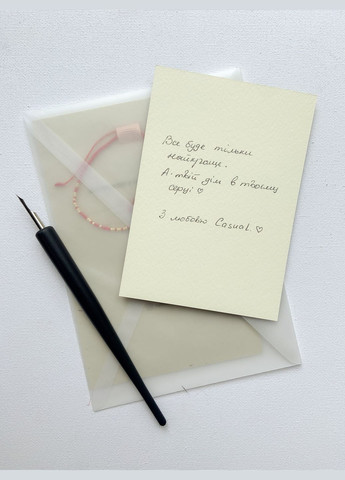 Все буде тільки
найкраще.
А твій дім в твоєму
серці ♡
З любовю Casual ♡